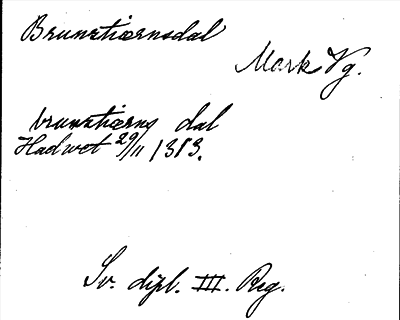 Brunstiærnsdal
Mark Vg.
brunstiærns dal
Hadwet 29/11 1313.
Sv. dipl. III. Reg.